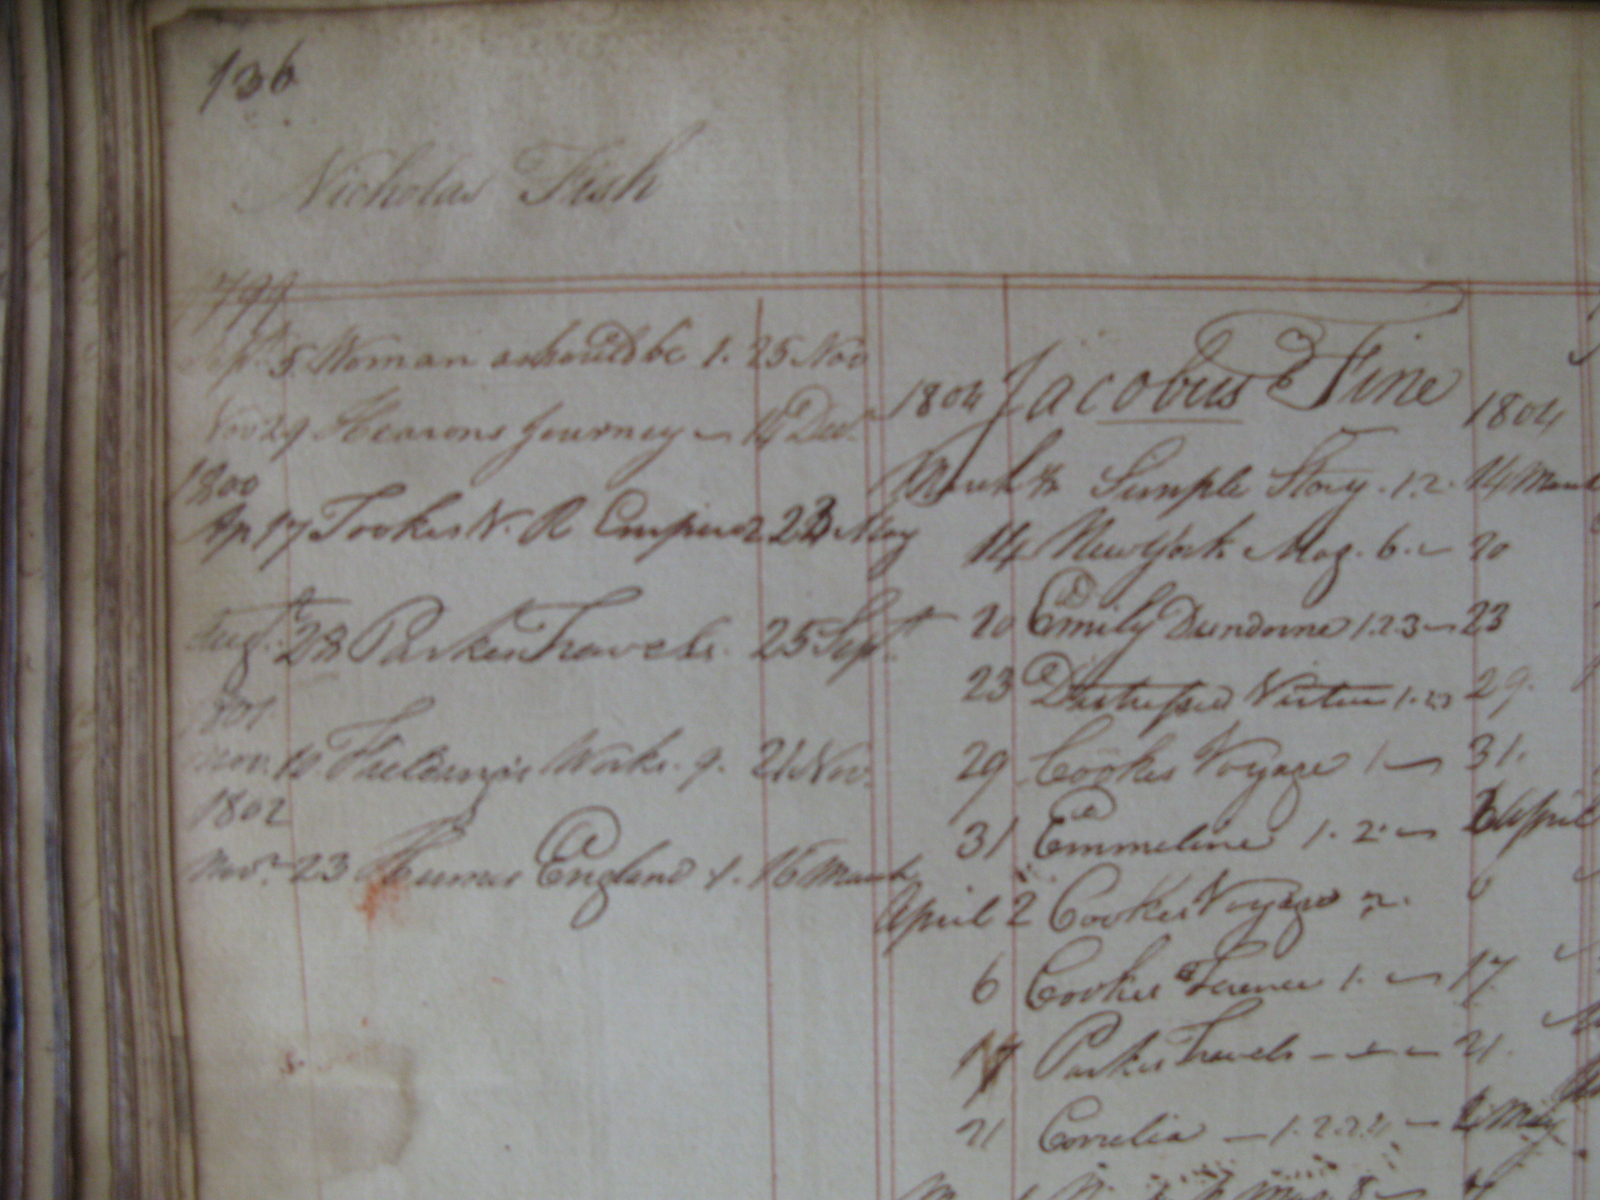 136
Nicholas Fish
1799
Sept. 5 Woman as should be 1. 25 Nov
Nov 29 Hearons Journey 14 Dec.
1800
Ap 17 Tookes V. R Empire 2 May
Augt. 28 Parkes Travels. 25 Sept.
1801
Nov. 10 Fieldings Works. 9. 21 Nov.
1802
Novr. 23 Humes England 1. 16 March
1804 Jacobus Fine 1804
March Simple Story. 1.2. 14 March
14 New York Mag. 6. 20
20 Emily Dundorne 1.2.3 23
23 Distressed Virtue 1.2.3 29.
29 Cookes Voyage 1 31.
31 Emmeline 1. 2. April
April 2 Cookes Voyage 2. 6
6 Cookes Terence 1. 17
17 Parkes Travels 21.
21 Cornelia 1. 2. May